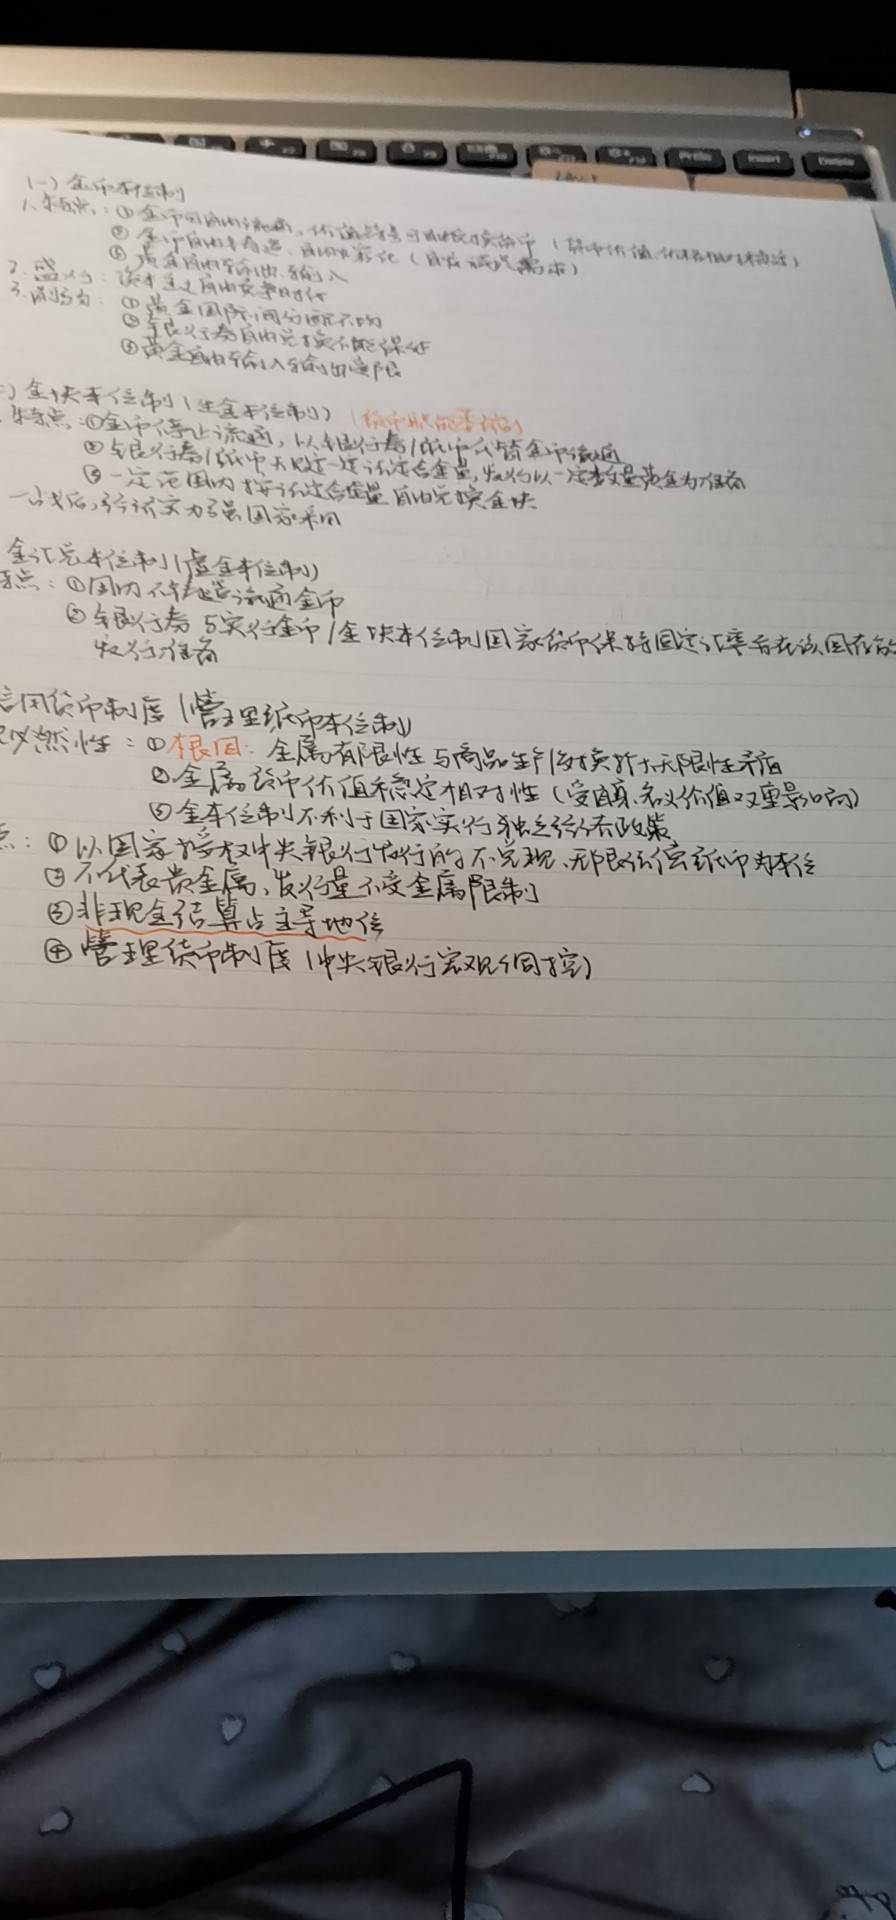 (一) 金币本位制
1. 特点: ① 金币可自由流通, 价值符号可自由兑换金币
② 金币自由铸造、自由熔化 (自发满足需求)
③ 黄金自由输出、输入
2. 盛行: 资本主义自由竞争时代
3. 崩溃: ① 黄金国际间分配不均
② 银行券自由兑换不能保证
③ 黄金自由输入输出受限
) 金块本位制 (生金本位制)
特点: ① 金币停止流通, 以银行券/纸币代替金币流通
② 银行券/纸币规定一定法定含金量, 发行以一定数量黄金为准备
③ 一定范围内按法定含金量自由兑换金块
一战后, 经济实力强国家采用
金汇兑本位制 (虚金本位制)
特点: ① 国内不铸造流通金币
② 银行券与实行金币/金块本位制国家货币保持固定汇率 并在该国存放
发行准备
信用货币制度 (管理纸币本位制)
必然性: ① 根因: 金属有限性与商品生产/交换扩大无限性矛盾
② 金属货币价值稳定相对性 (受自身、名义价值双重影响)
③ 金本位制不利于国家实行独立经济政策
点: ① 以国家授权中央银行发行的不兑现、无限法偿纸币为本位
② 不代表贵金属, 发行量不受金属限制
③ 非现金结算占主导地位
④ 管理货币制度 (中央银行宏观调控)
Delete